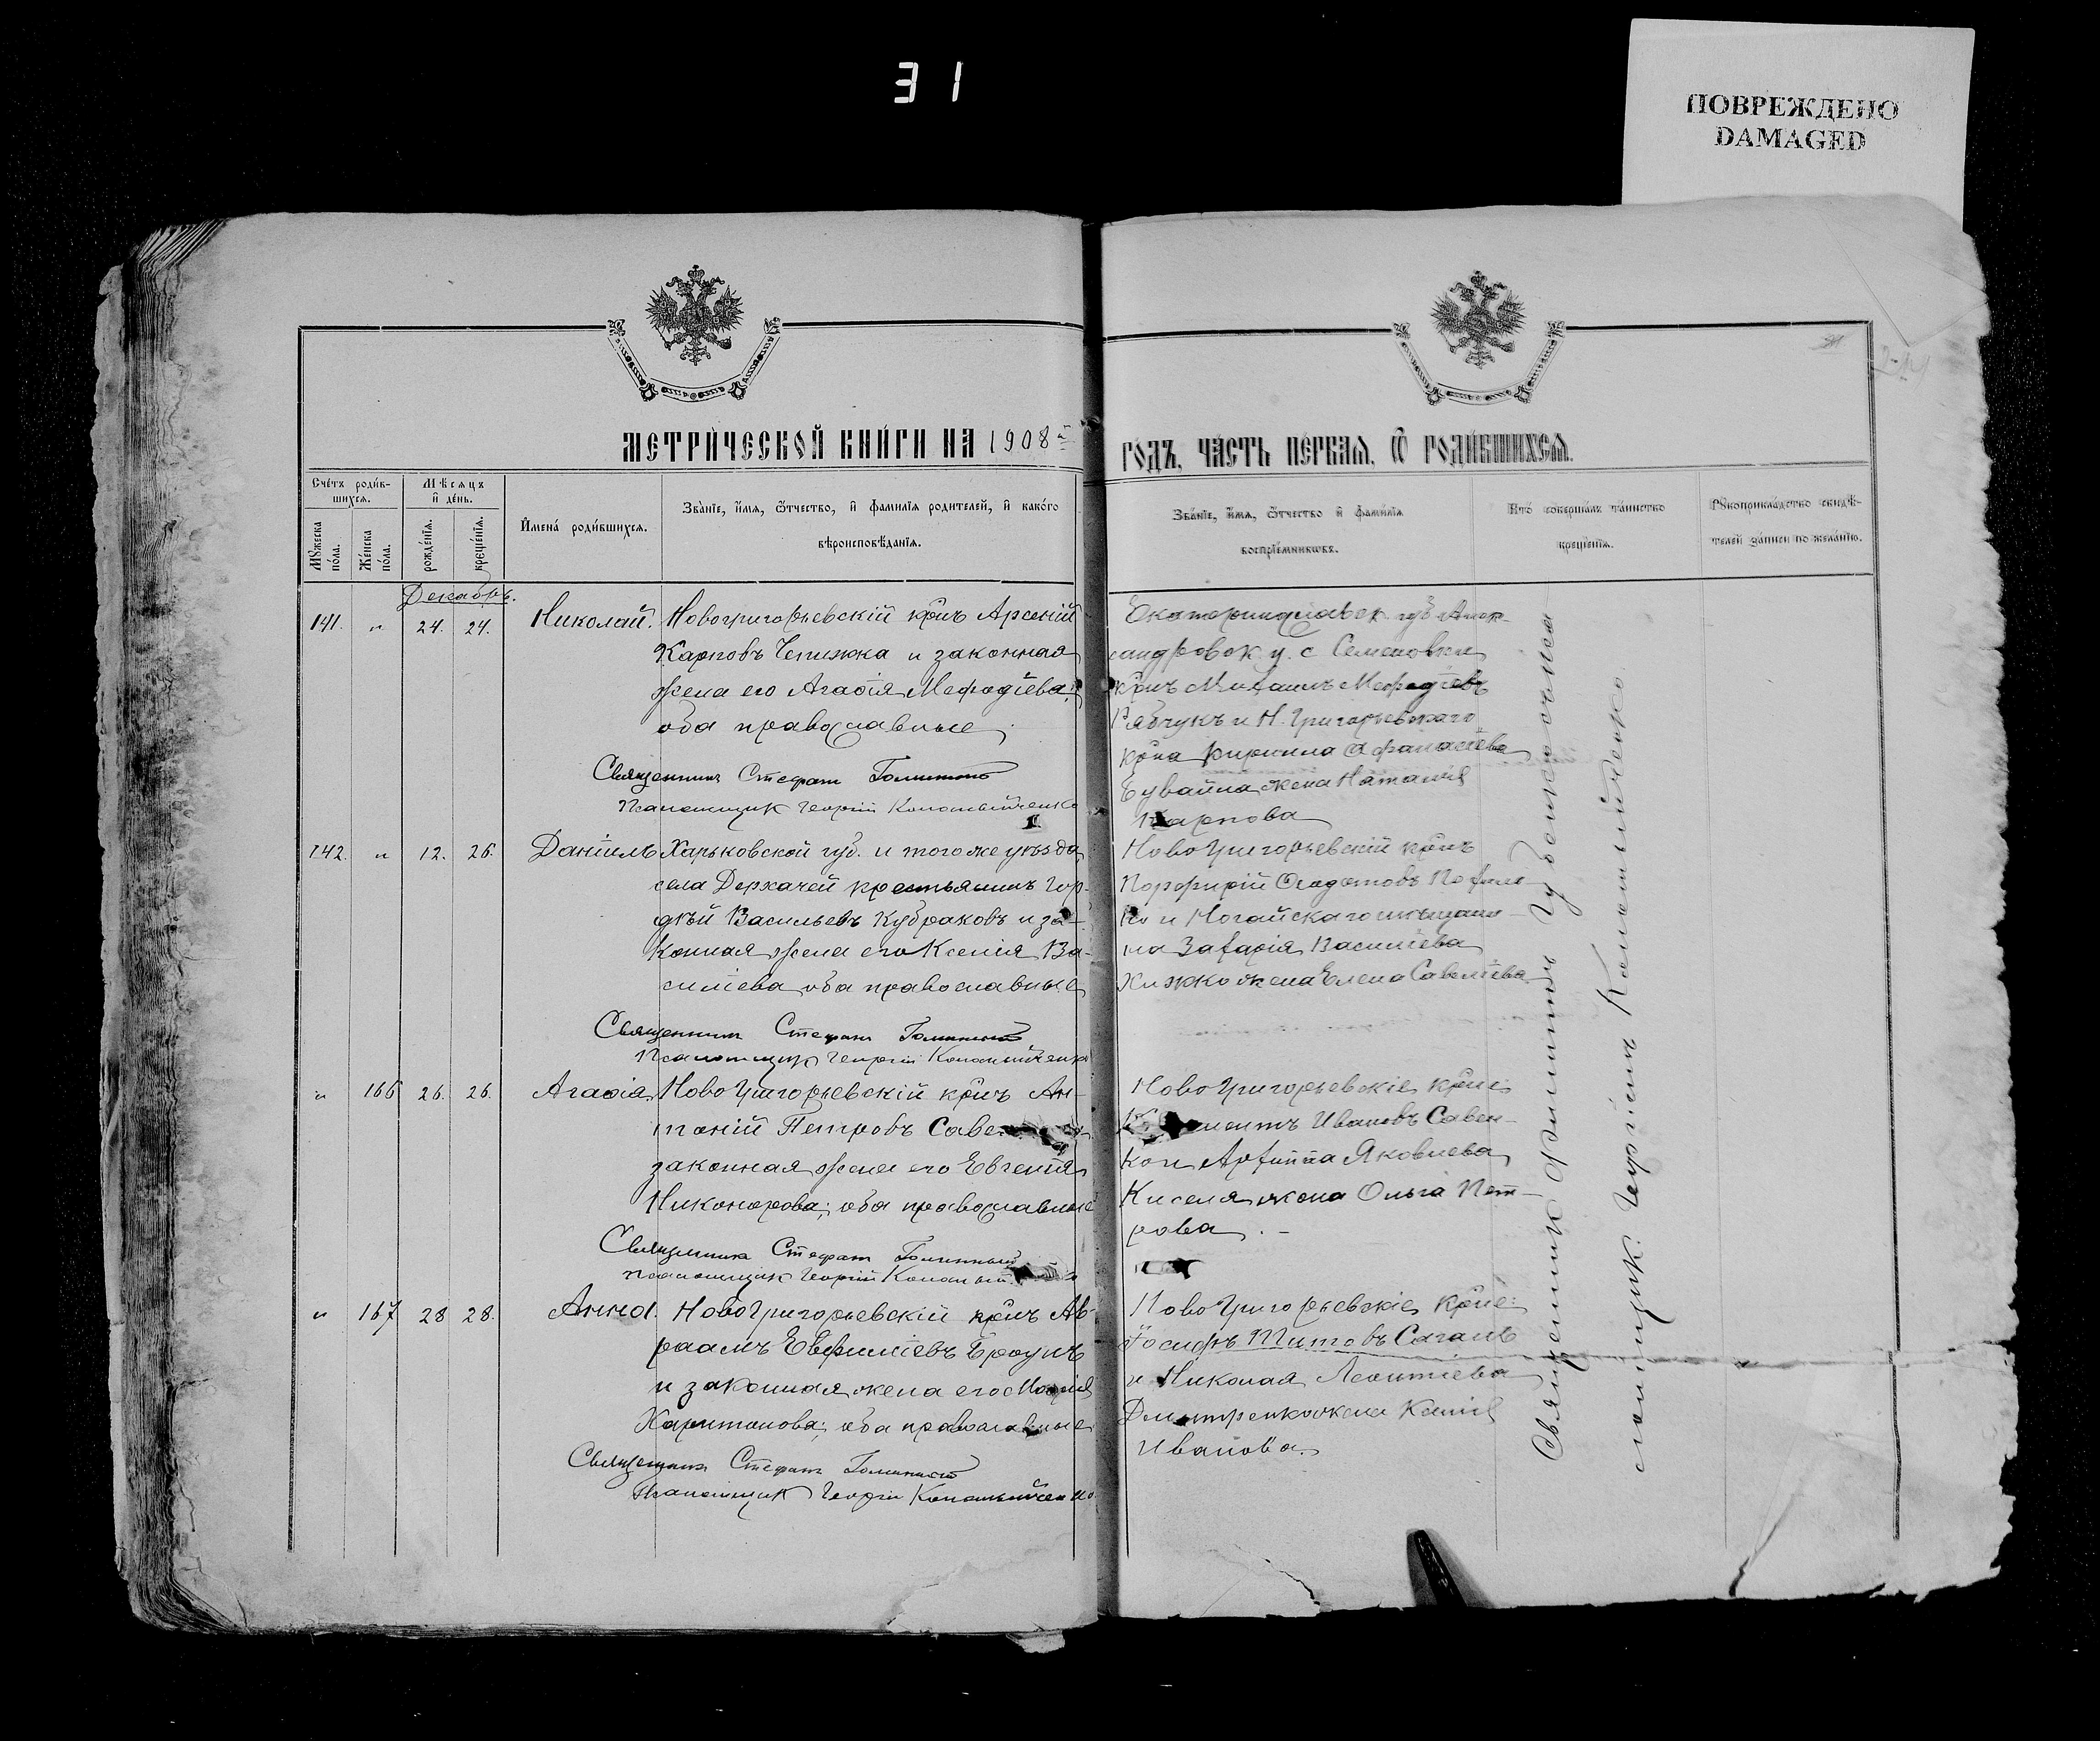 31
ПОВРЕЖДЕНО
DAMAGED
МЕТРИ́ЧЕСКОЙ КНИ́ГИ НА 1908й
ГОДЪ, ЧАСТЬ ПЕ́РВАЯ, Ѡ РОДИ́ВШИХСЯ.
Сче́тъ роди́в-
шихся.
Мꙋжеска по́ла.
Же́нска по́ла.
Мѣсяцъ
и де́нь.
рожде́нія.
креще́нія.
Имена́ роди́вшихся.
Зва́ніе, и́мя, ѻ́тчество, и фамилія родителей, и како́го
вѣроисповѣ́данія.
Зва́ніе, и́мя, ѻ́тчество и фами́лія
воспріе́мниковъ.
Кто́ соверша́лъ та́инство
креще́нія.
Рꙋкоприкла́дство свидѣ́-
телей за́писи по жела́нію.
Декабрь.
141. " 24. 24. Николай. Новогригорьевскій кр̃нъ Арсеній
Карповъ Чепижка и законная
жена его Агаѳія Мефодіева;
оба православные
Священникъ Стефанъ
Псаломщик Георгій
Екатеринославск. губ. Алек-
сандровск. у. с. Семеновки
кр̃нъ Михаилъ Мефодіевъ
Рябчукъ и Н. Григорьевскаго
кр̃на Кирилла Афанасіева
Бувайла жена Наталія
Карпова
142. " 12. 26. Даніилъ Харьковской губ. и того же уѣзда
села Дергачей крестьянинъ Гор-
дѣй Васильевъ Кубраковъ и за-
конная жена его Ксенія Ва-
силіева оба православные
Священникъ Стефанъ
Псаломщик Георгій
Ново Григорьевскій кр̃нъ
Порфирій Ѳеодотовъ
и Ногайскаго мѣщани-
на Захарія Василіева
Хижко жена Елена Савеліева
" 166 26. 26. Агаѳія. Ново Григорьевскій кр̃нъ Ан-
тоній Петровъ
законная жена его Евгенія
Никонорова; оба православные
Священникъ Стефанъ
Псаломщик Георгій
Ново Григорьевскіе кр̃не:
Ивановъ Савен-
ко и Архиппа Яковлева
Киселя жена Ольга Пет-
рова. -
" 167 28 28. Анна. Ново Григорьевскій кр̃нъ Ав-
раамъ Евфиміевъ
и законная жена его Марія
Харитонова; оба православные
Священникъ Стефанъ
Псаломщик Георгій
Ново Григорьевскіе кр̃не:
Іосифъ Титовъ Саганъ
и Николая Леонтіева
Дмитренко жена
Иванова.
Священник Филиппъ
Георгій